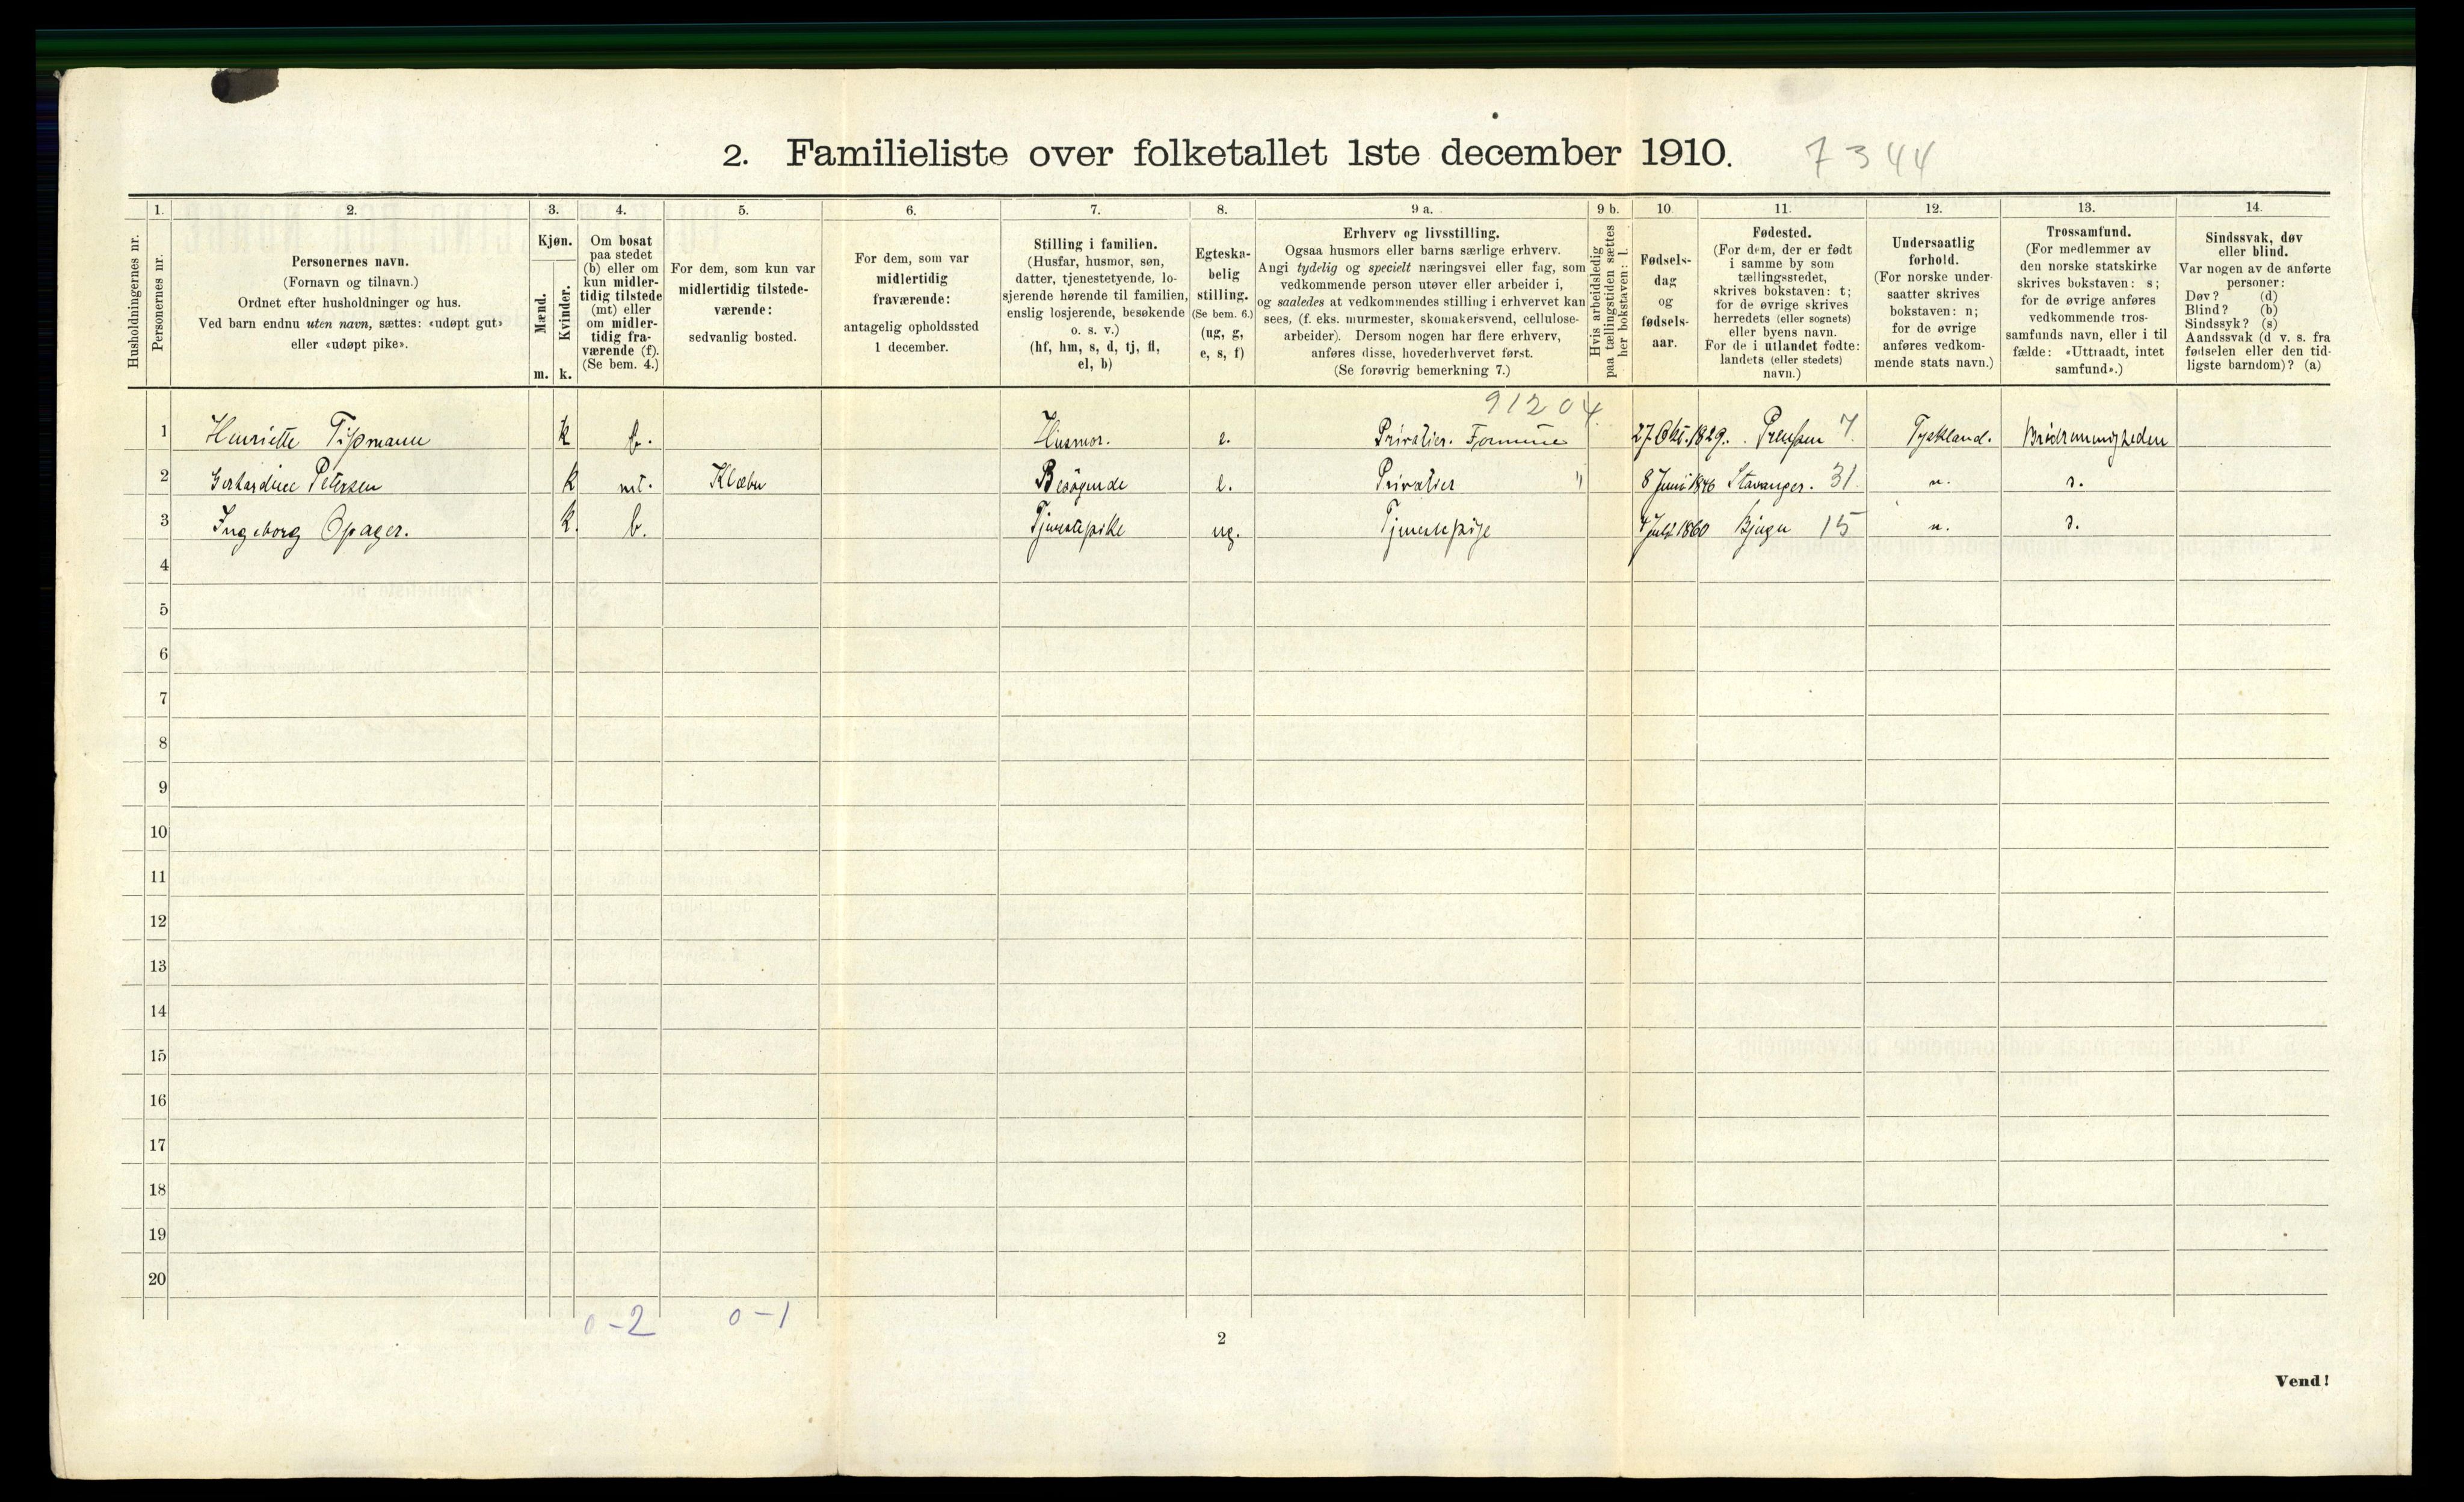 2. Familieliste over folketallet 1ste december 1910. 7344
1. 2. 3. 4. 5. 6. 7. 8. 9 a. 9 b. 10. 11. 12. 13. 14.
Husholdningernes nr.
Personernes nr.
Personernes navn.
(Fornavn og tilnavn.)
Ordnet efter husholdninger og hus.
Ved barn endnu uten navn, sættes: «udøpt gut»
eller «udøpt pike».
Kjøn.
Mænd.
Kvinder.
m. k.
Om bosat
paa stedet
(b) eller om
kun midler-
tidig tilstede
(mt) eller
om midler-
tidig fra-
værende (f).
(Se bem. 4.)
For dem, som kun var
midlertidig tilstede-
værende:
sedvanlig bosted.
For dem, som var
midlertidig
fraværende:
antagelig opholdssted
1 december.
Stilling i familien.
(Husfar, husmor, søn,
datter, tjenestetyende, lo-
sjerende hørende til familien,
enslig losjerende, besøkende
o. s. v.)
(hf, hm, s, d, tj, fl,
el, b)
Egteska-
belig
stilling.
(Se bem. 6.)
(ug, g,
e, s, f)
Erhverv og livsstilling.
Ogsaa husmors eller barns særlige erhverv.
Angi tydelig og specielt næringsvei eller fag, som
vedkommende person utøver eller arbeider i,
og saaledes at vedkommendes stilling i erhvervet kan
sees, (f. eks. murmester, skomakersvend, cellulose-
arbeider). Dersom nogen har flere erhverv,
anføres disse, hovederhvervet først.
(Se forøvrig bemerkning 7.)
Hvis arbeidsledig
paa tællingstiden sættes
her bokstaven: l.
Fødsels-
dag
og
fødsels-
aar.
Fødested.
(For dem, der er født
i samme by som
tællingsstedet,
skrives bokstaven: t;
for de øvrige skrives
herredets (eller sognets)
eller byens navn.
For de i utlandet fødte:
landets (eller stedets)
navn.)
Undersaatlig
forhold.
(For norske under-
saatter skrives
bokstaven: n;
for de øvrige
anføres vedkom-
mende stats navn.)
Trossamfund.
(For medlemmer av
den norske statskirke
skrives bokstaven: s;
for de øvrige anføres
vedkommende tros-
samfunds navn, eller i til
fælde: «Uttraadt, intet
samfund».)
Sindssvak, døv
eller blind.
Var nogen av de anførte
personer:
Døv? (d)
Blind? (b)
Sindssyk? (s)
Aandssvak (d v. s. fra
fødselen eller den tid-
ligste barndom)? (a)
91204
1 Henriette k b. Husmor. e. Privatier. Formue 27. Okt. 1829. Preussen 7. Tyskland. Brødremenigheden
2 Gerhardine Petersen k mt. Klæbu Besøgende e. Privatier " 8 Juni 1846 Stavanger. 31 n. s.
3 Ingeborg Opager. k. b. Tjenestepike ug. Tjenestepige 4 Juli 1860 Bjugn 15 n. s.
4
5
6
7
8
9
10
11
12
13
14
15
16
17
18
19
20
0-2 0-1
2
Vend!